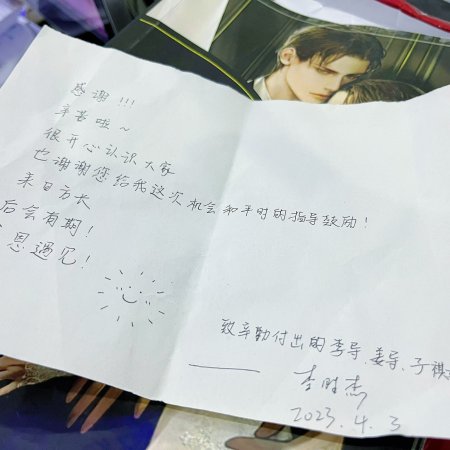 感谢!!!
辛苦啦~
很开心认识大家
也谢谢您给我这次机会和平时的指导鼓励!
来日方长
后会有期!
恩遇见!
致辛勤付出的李导、姜导、子祺
——李时杰
2023.4.3